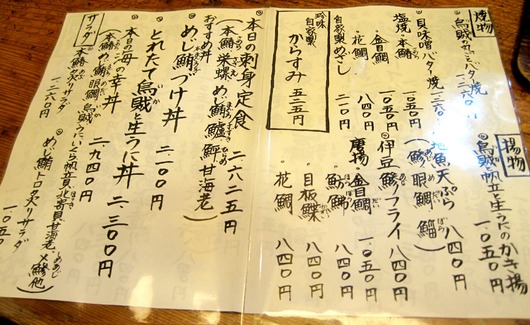 焼物
烏賊かにみそバター焼
一、二六〇円
貝味噌バター焼 一、二六〇円
塩焼・本鯛 一、〇五〇円
・金目鯛 一、〇五〇円
・花鯛 八四〇円
自家製めざし 二一〇円
珍味
自家製
からすみ 五二五円
揚物
烏賊と帆立と生うにのかき揚
一、〇五〇円
地魚天ぷら 八四〇円
(鯵 眼鯛 鰡)
伊豆鯵フライ 八四〇円
唐揚・金目鯛 一、〇五〇円
・魴鮄 八四〇円
・目板鰈 八四〇円
・花鯛 八四〇円
本日の刺身定食 二、六二五円
(本鮪 栄螺 めじ鮪 鱸 鮃 甘海老)
おすすめ丼
めじ鮪づけ丼 二、一〇〇円
とれたて烏賊と生うに丼 二、三〇〇円
本日の海の幸丼 二、九四〇円
サラダ
本鮪炙りサラダ 一、二六〇円
めじ鮪トロ炙りサラダ 一、〇五〇